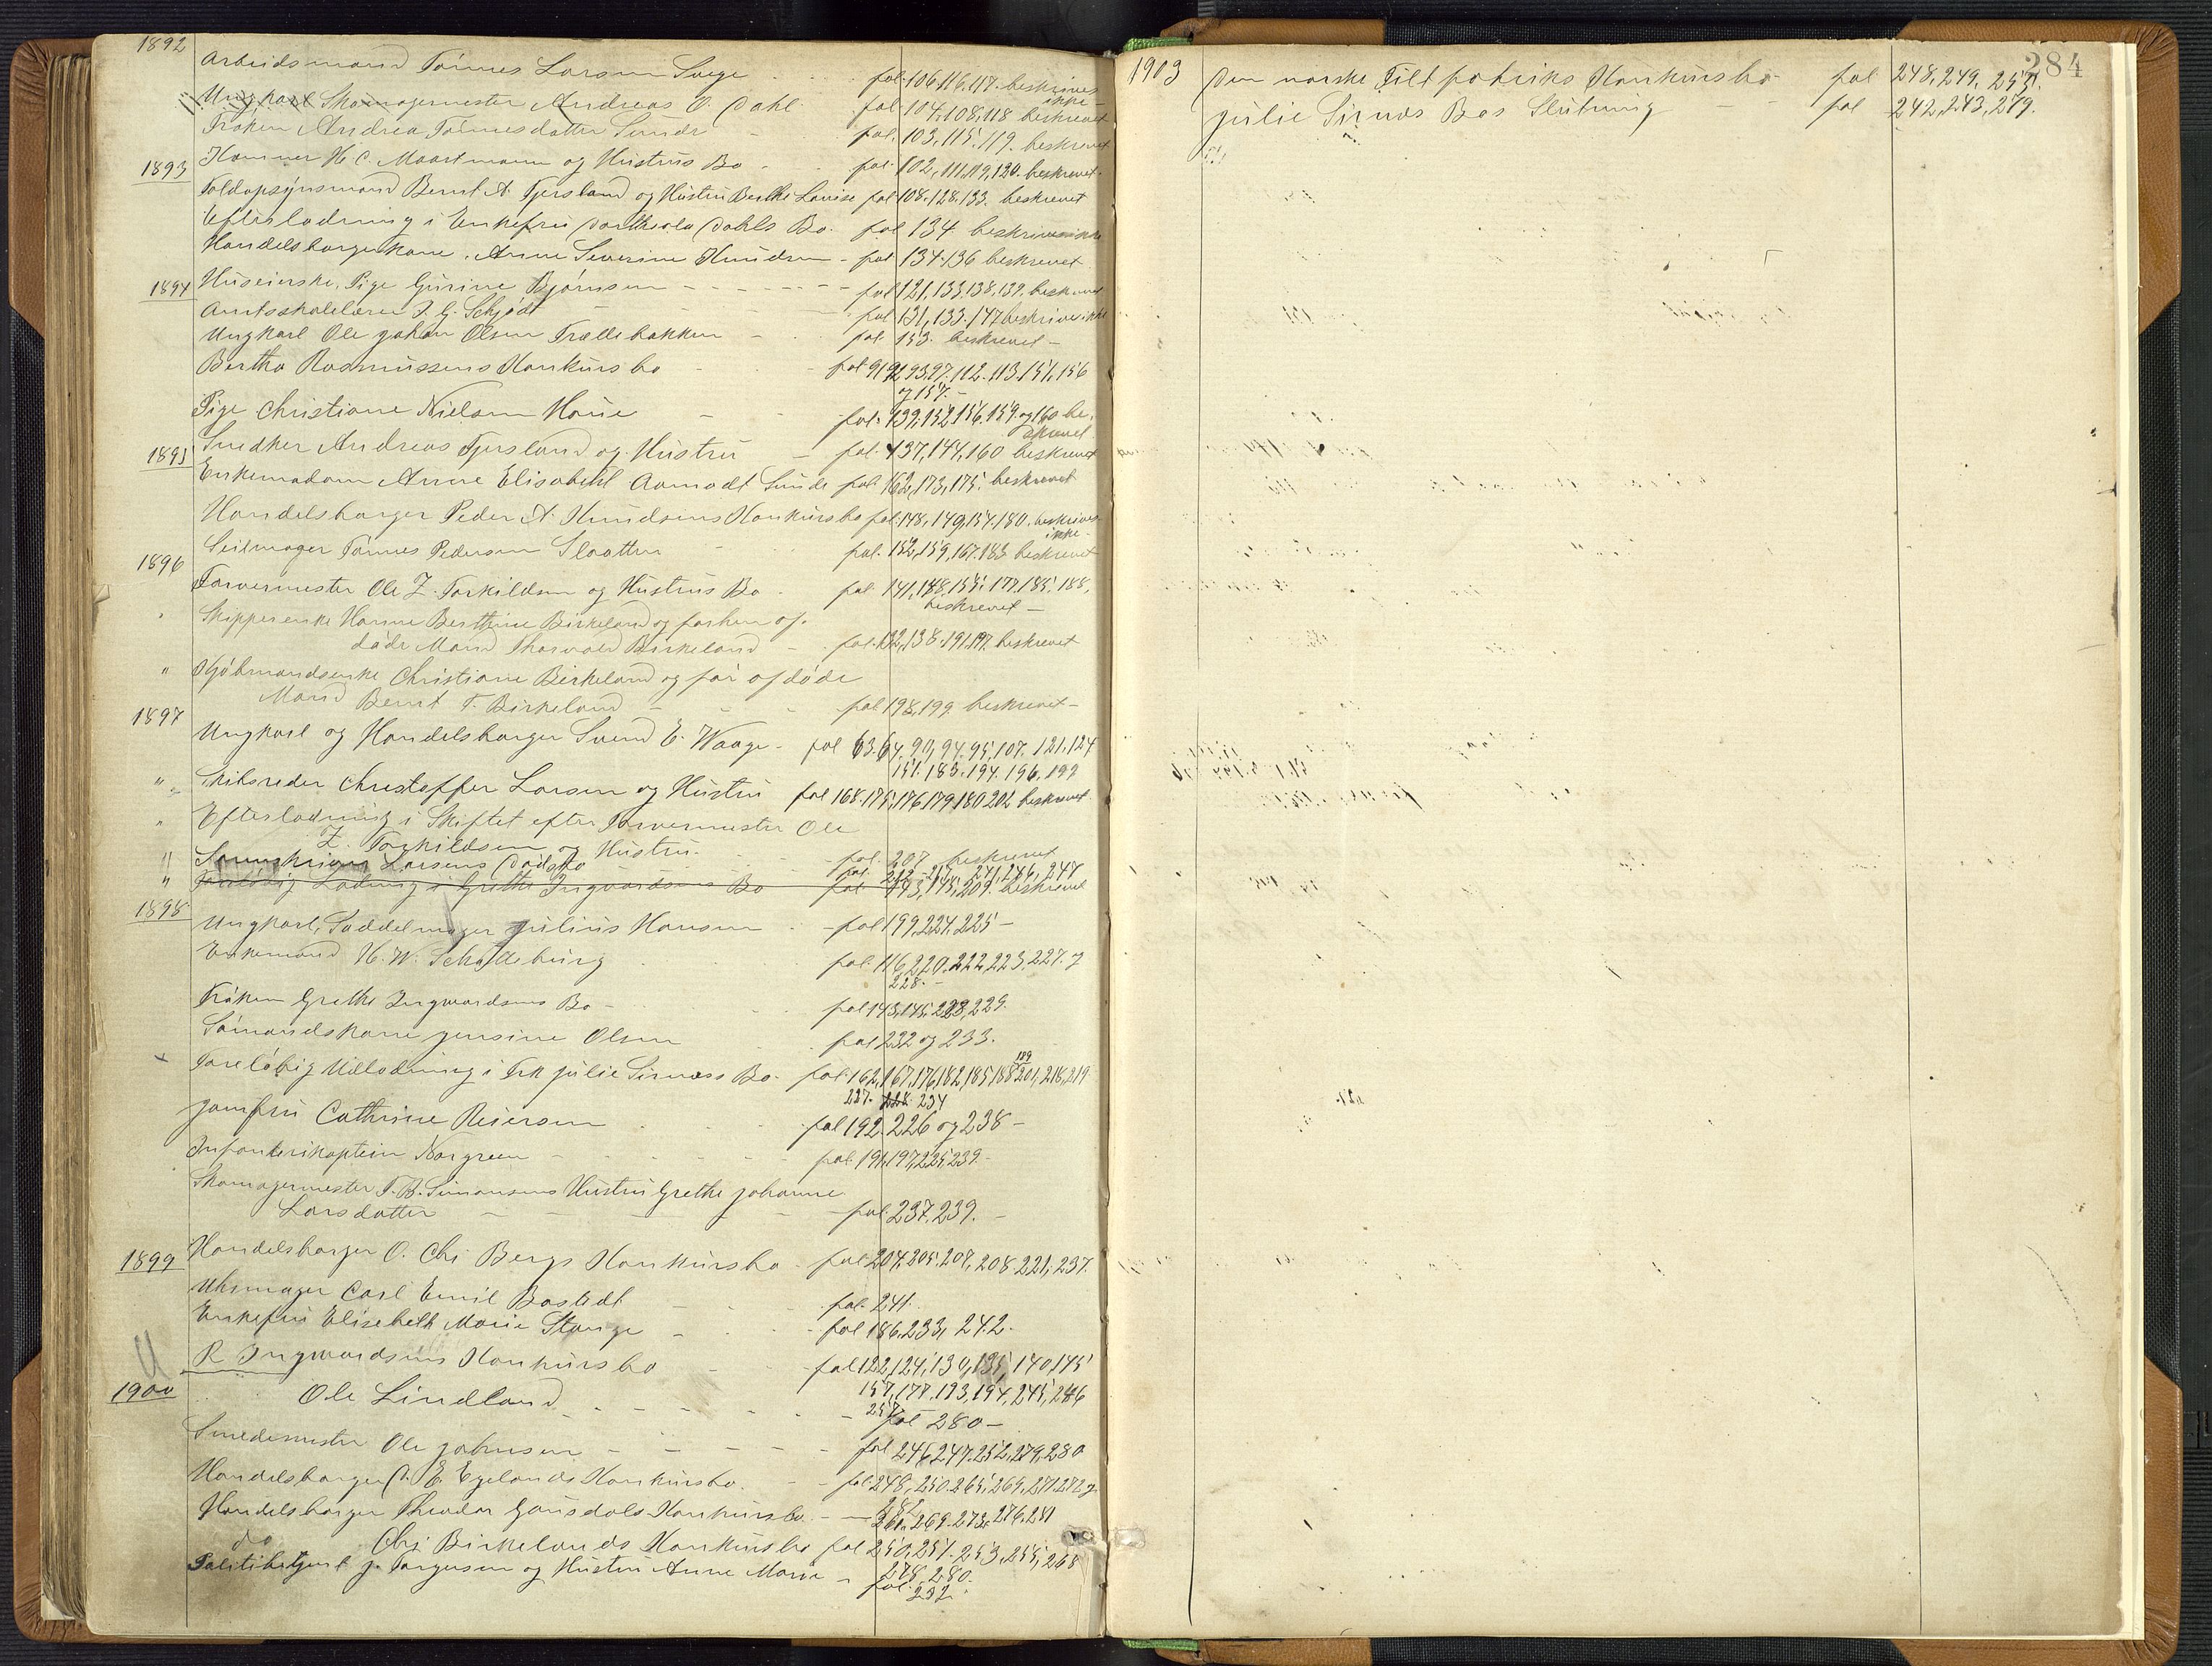 1892
Arbeidsmand Tönnes Larsen Svege fol. 106, 116, 117. beskrives ikke -
Ungkarl Skomagermester Andreas O. Dahl. fol. 104, 108, 118 beskrevet
Fröken Andrea Tönnesdatter Sunde - fol. 103, 115, 119. beskrevet
1893 H. C. Moortmann og Hustrus Bo - fol. 102, 111, 119, 120. beskrevet.
Toldopsynsmand Bernt A. Tjersland og Hustru Berthe Lovise fol 108. 128. 133. beskrevet
Efterlodning i Enkefru Dahls Bo. fol 134. beskrives ikke
Handelsborgerkone Anne Severine Knudsen - fol 134. 136 beskrevet
1894 Huseierske, Pige Gurine Björnsen - - - fol 121, 133, 138, 139. beskrevet
Amtsskolelærer J. G. Schjödt fol 131, 133. 147 beskrives ikke
Ungkarl Ole Johan Olsen Trællebakken - fol. 153. beskrevet -
Bertha Rasmussens Konkursbo - fol 91 92 93. 97. 112. 113. 151, 156
og 157. -
Pige Christiane Nielsen Houe - fol. 139, 152, 156. 159. og 160 be-
skrevet
1895 Snedker Andreas Tjersland og Hustru - fol. 137, 144, 160 beskrevet
Enkemadam Anne Elisabeth Aamodt Sunde fol. 162, 173, 175. beskrevet
Handelsborger Peder A. Knudsens Konkursbo fol. 148, 149, 154. 180. beskrives
ikke -
Seilmager Tönnes Pedersen Slootten - fol. 152, 159, 167. 183 beskrevet
1896
Farvermester Ole Z. Torkildsen og Hustrus Bo fol. 141, 148, 155. 177. 185. 188,
beskrevet -
Skipperenke Hanne Berthine Birkeland og forhen af-
döde Mand Thorvald Birkeland - fol. 132, 138. 191. 197. beskrevet
" Kjöbmandsenke Christiane Birkeland og för afdöde
Mand Bernt T. Birkeland - fol 198, 199 beskrevet -
1897
Ungkarl og Handelsborger Svend E. Waage - fol 63. 64, 90, 94. 95, 107. 121, 124
151. 183. 194. 196. 199
" Skibsreder Christoffer Larsen og Hustru fol 168. 175, 176, 179, 180 202 beskrevet
" Efterlodning i Skiftet efter Farvermester Ole
Z. Torkildsen og Hustru. - fol. 207 beskrevet
" Larsens Dödsbo fol. 241, 246, 247
" Foreløbig Lodning i Grethe Ingvardsens Bo fol 143, 145, 209. beskrevet
1898
Ungkarl, Saddelmager Julius Hansen - fol 199, 224, 225 -
Enkemand H. W. Schatteburg fol. 116, 220. 222 223. 227. og
228. -
Fröken Grethe Ingwardsens Bo - fol 143, 145, 228, 229.
Sömandskone Jensine Olsen fol 232 og 233.
Foreløbig Udlodning i Frk Julie Sirness Bo. fol. 162, 167, 176, 182, 185, 188 189 201, 218, 219
227. 228. 234
Jomfru Cathrine Reiersen fol 192. 226 og 238 -
Infanterikaptein Norgreen - fol. 191, 197, 225, 239. -
Skomagermester T. B. Simonsens Hustru Grethe Johanne
Larsdatter - fol. 237. 239. -
1899 Handelsborger O. Chr Bergs Konkursbo - fol 204, 205, 207, 208 221, 237.
Uhrmager Carl Emil Bostedt fol. 241.
Enkefru Elisebeth Marie Stange - fol 186, 233, 242.
R Ingwardsens Konkursbo - fol 122, 124, 130, 135, 140, 145
157, 177. 193, 194, 245, 246
257
1900 Ole Lindland - - - fol 280 -
Smedemester Ole Johnsen - - - fol 246, 247. 252, 279, 280
Handelsborger E. Egelands Konkursbo. - fol. 248, 250. 265, 269, 271. 272 og
282
Handelsborger Theodor Gausdals Konkursbo. - 261. 269. 273. 276. 281
do Chr Birkelands Konkursbo fol 250, 251. 253, 255, 268
278, 280.
Politibetjent J. Torgersen og Hustru Anne Marie - fol. 282
284
1903 Den norske Filtfabriks Konkursbo - fol 248, 249, 257.
Julie Sirnes Bos Slutning - fol 242, 243, 279.